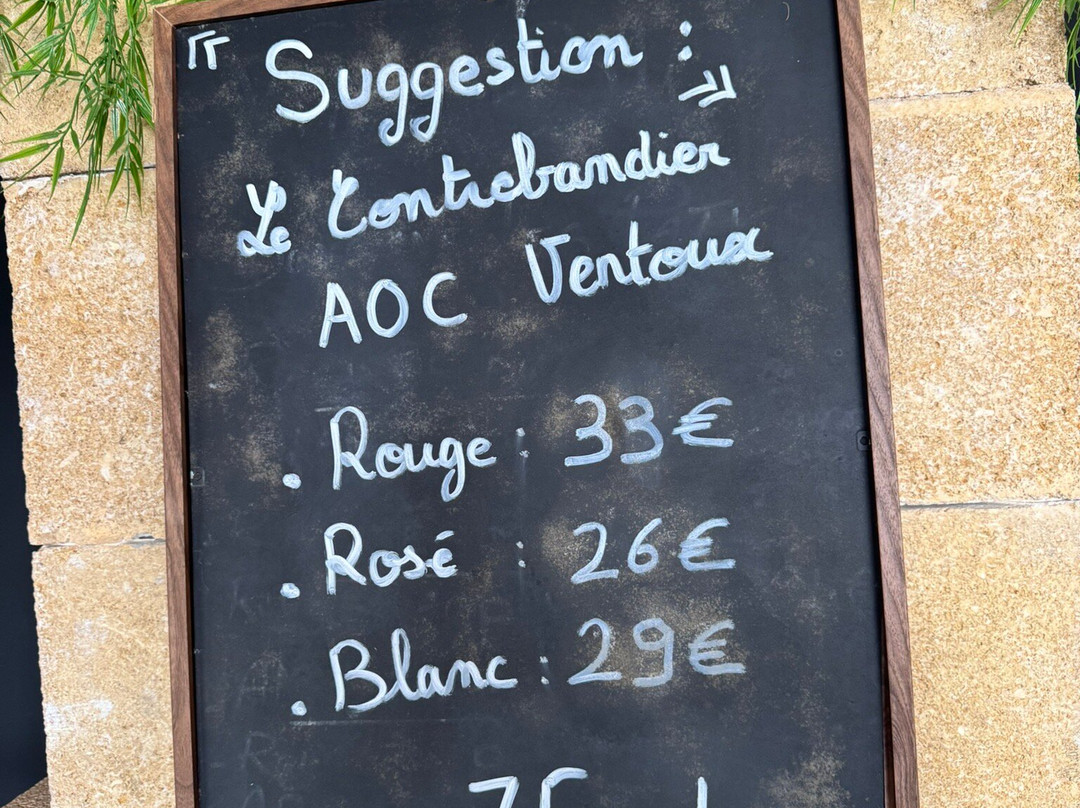 Suggestion :
Le Contrebandier
AOC Ventoux
. Rouge : 33€
. Rosé : 26€
. Blanc : 29€